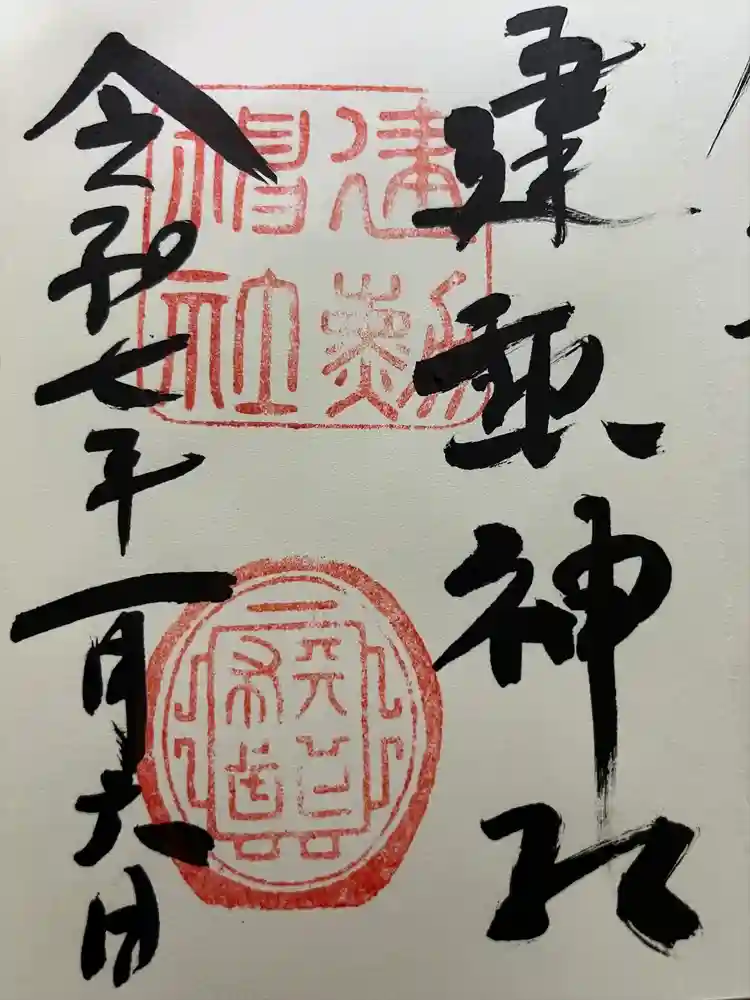 建勲神社
建勲
神社
令和七年一月六日